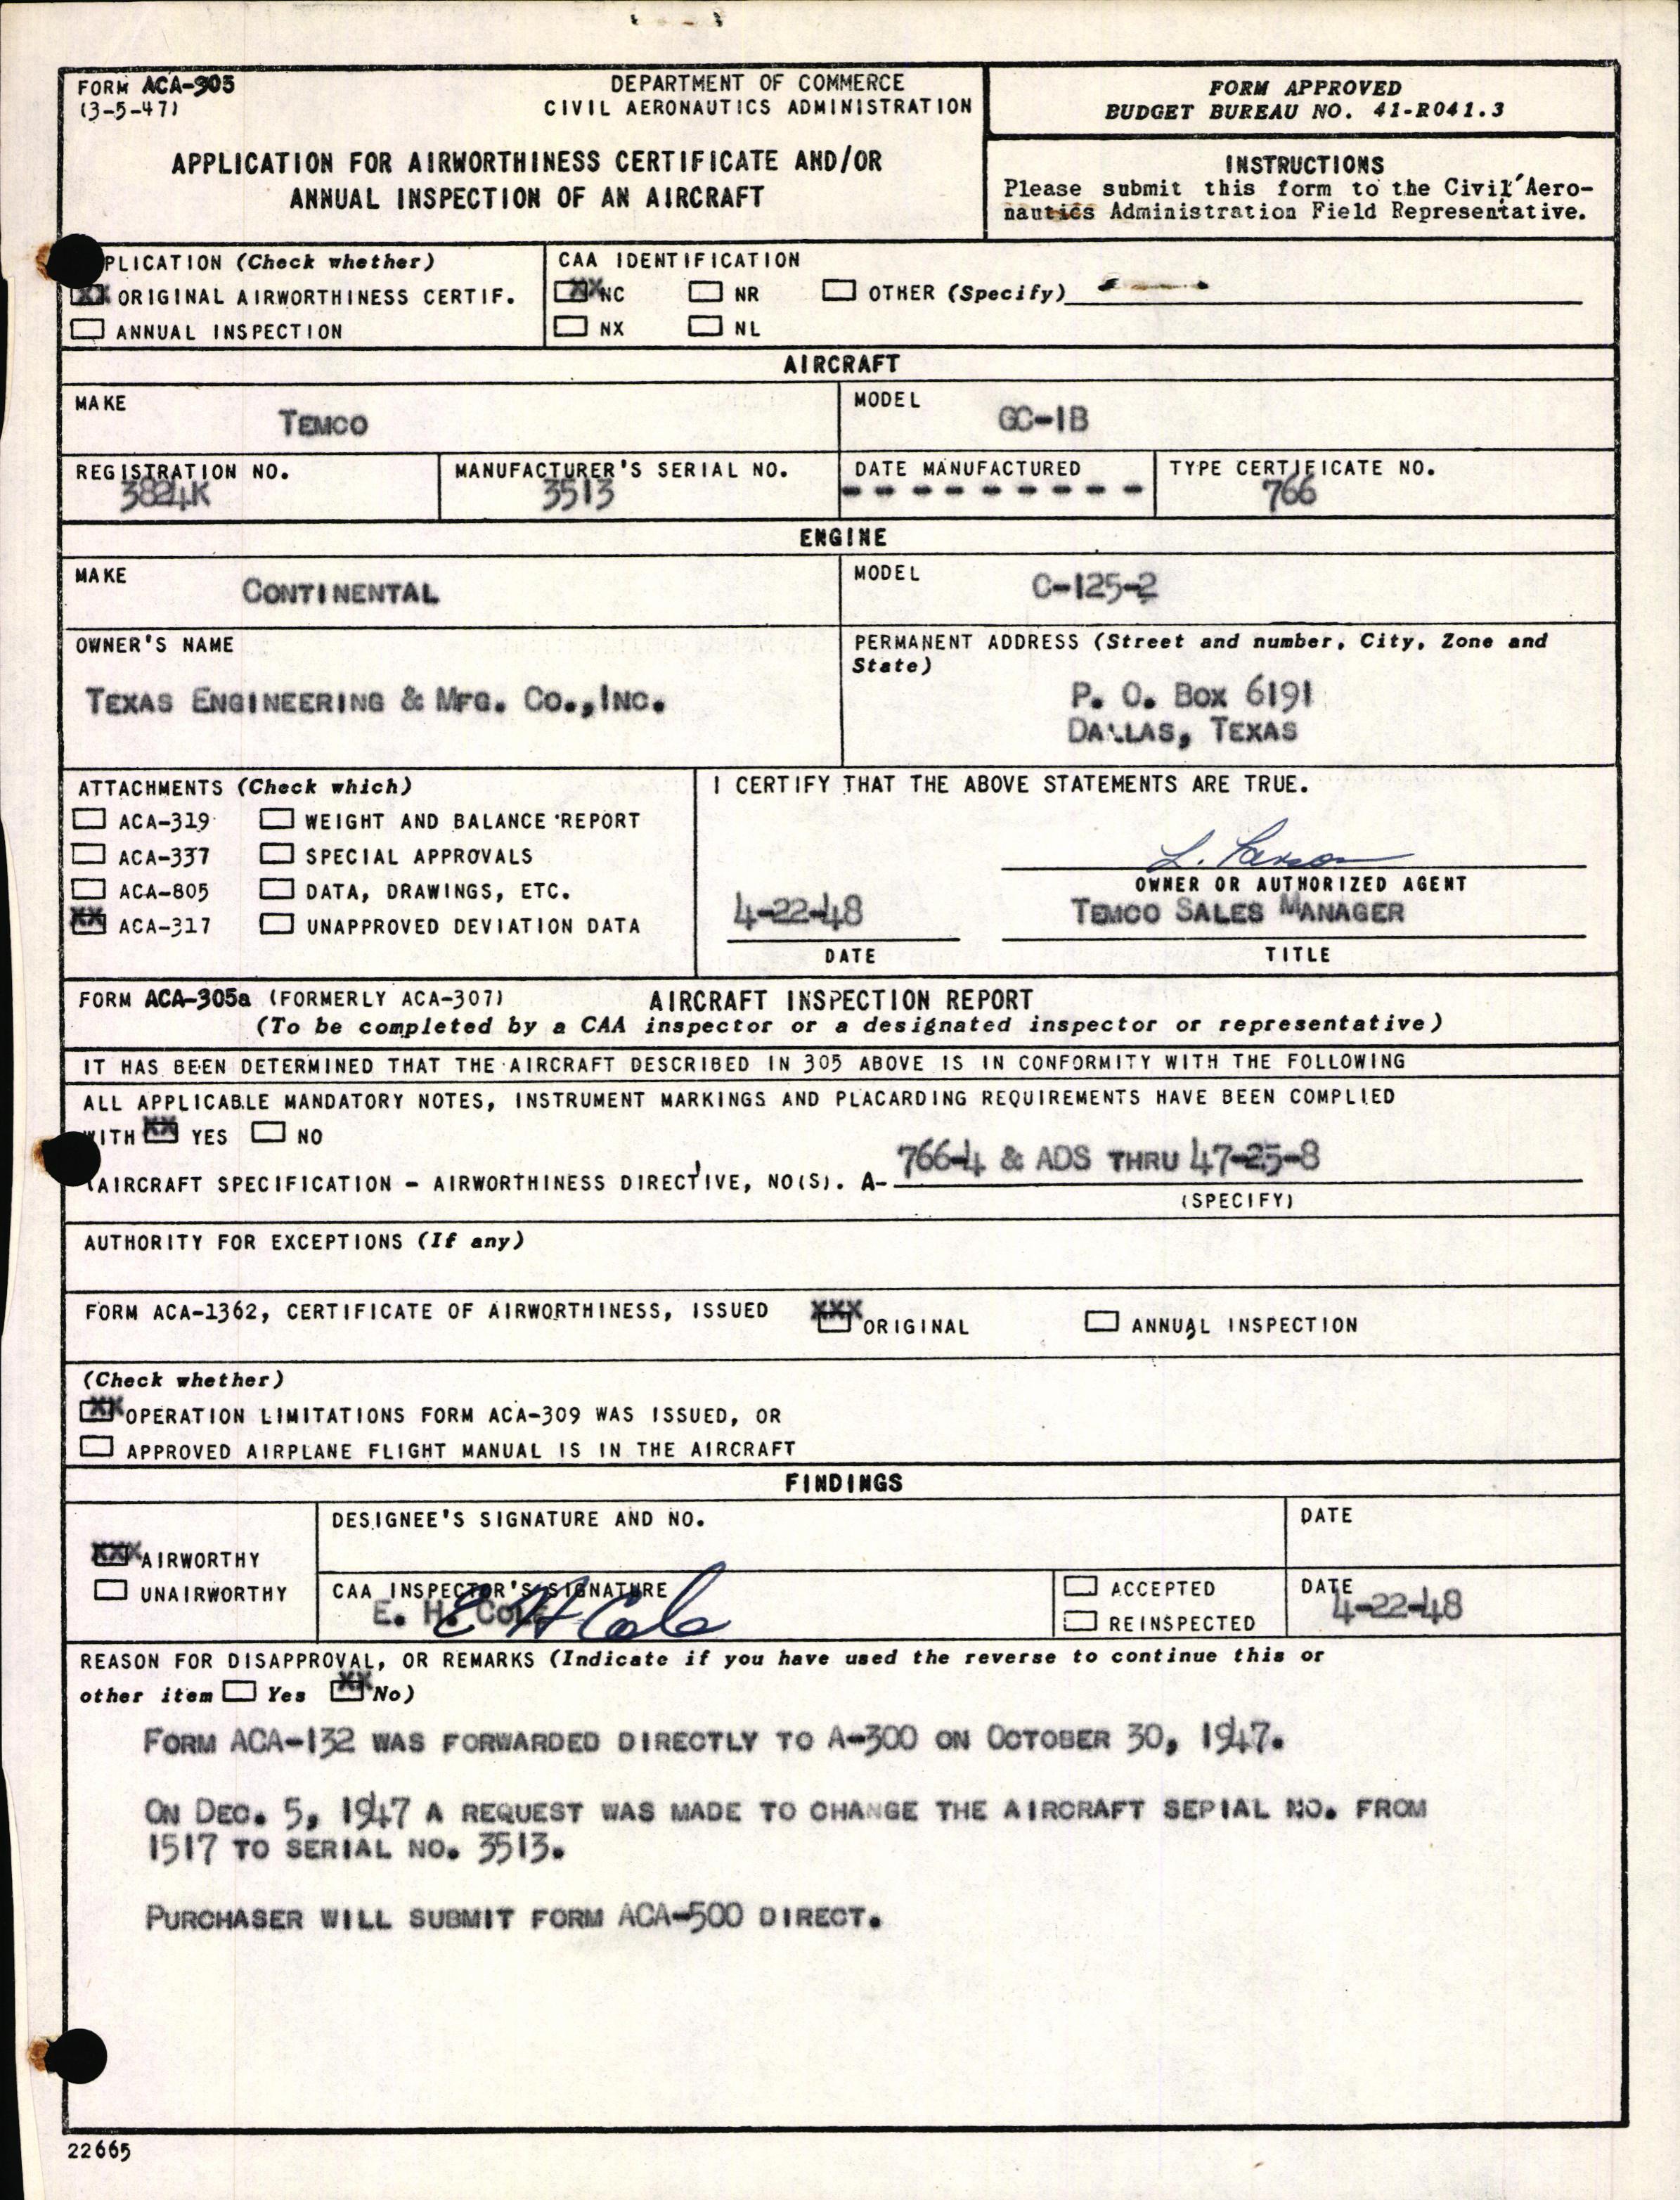 FORM ACA-305
(3-5-47)
DEPARTMENT OF COMMERCE
CIVIL AERONAUTICS ADMINISTRATION
APPLICATION FOR AIRWORTHINESS CERTIFICATE AND/OR
ANNUAL INSPECTION OF AN AIRCRAFT
FORM APPROVED
BUDGET BUREAU NO. 41-R041.3
INSTRUCTIONS
Please submit this form to the Civil Aero-
nautics Administration Field Representative.
PLICATION (Check whether)
XX ORIGINAL AIRWORTHINESS CERTIF.
ANNUAL INSPECTION
CAA IDENTIFICATION
XX NC NR OTHER (Specify)
NX NL
AIRCRAFT
MAKE
TEMCO
MODEL
GC-1B
REGISTRATION NO.
3824K
MANUFACTURER'S SERIAL NO.
3513
DATE MANUFACTURED
- - - - - - - - -
TYPE CERTIFICATE NO.
766
ENGINE
MAKE
CONTINENTAL
MODEL
C-125-2
OWNER'S NAME
TEXAS ENGINEERING & MFG. CO.,INC.
PERMANENT ADDRESS (Street and number, City, Zone and
State)
P. O. BOX 6191
DALLAS, TEXAS
ATTACHMENTS (Check which)
ACA-319 WEIGHT AND BALANCE REPORT
ACA-337 SPECIAL APPROVALS
ACA-805 DATA, DRAWINGS, ETC.
XX ACA-317 UNAPPROVED DEVIATION DATA
I CERTIFY THAT THE ABOVE STATEMENTS ARE TRUE.
L. Larson
OWNER OR AUTHORIZED AGENT
4-22-48
TEMCO SALES MANAGER
DATE
TITLE
FORM ACA-305a (FORMERLY ACA-307) AIRCRAFT INSPECTION REPORT
(To be completed by a CAA inspector or a designated inspector or representative)
IT HAS BEEN DETERMINED THAT THE AIRCRAFT DESCRIBED IN 305 ABOVE IS IN CONFORMITY WITH THE FOLLOWING
ALL APPLICABLE MANDATORY NOTES, INSTRUMENT MARKINGS AND PLACARDING REQUIREMENTS HAVE BEEN COMPLIED
WITH XX YES NO
(AIRCRAFT SPECIFICATION - AIRWORTHINESS DIRECTIVE, NO(S). A- 766-4 & ADS THRU 47-25-8
(SPECIFY)
AUTHORITY FOR EXCEPTIONS (If any)
FORM ACA-1362, CERTIFICATE OF AIRWORTHINESS, ISSUED XXX ORIGINAL ANNUAL INSPECTION
(Check whether)
XX OPERATION LIMITATIONS FORM ACA-309 WAS ISSUED, OR
APPROVED AIRPLANE FLIGHT MANUAL IS IN THE AIRCRAFT
FINDINGS
XXX AIRWORTHY
UNAIRWORTHY
DESIGNEE'S SIGNATURE AND NO.
DATE
CAA INSPECTOR'S SIGNATURE
E. H. COLE
E H Cole
ACCEPTED
REINSPECTED
DATE
4-22-48
REASON FOR DISAPPROVAL, OR REMARKS (Indicate if you have used the reverse to continue this or
other item Yes XX No)
FORM ACA-132 WAS FORWARDED DIRECTLY TO A-300 ON OCTOBER 30, 1947.
ON DEC. 5, 1947 A REQUEST WAS MADE TO CHANGE THE AIRCRAFT SEPIAL NO. FROM
1517 TO SERIAL NO. 3513.
PURCHASER WILL SUBMIT FORM ACA-500 DIRECT.
22665